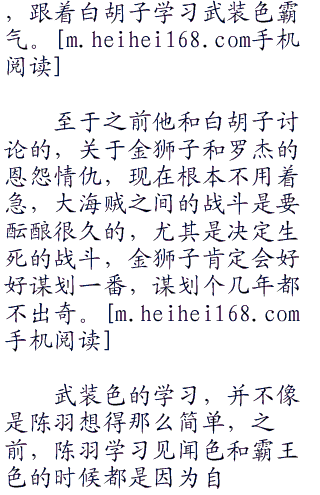 ，跟着白胡子学习武装色霸
气。[m.heihei168.com手机
阅读]
至于之前他和白胡子讨
论的，关于金狮子和罗杰的
恩怨情仇，现在根本不用着
急，大海贼之间的战斗是要
酝酿很久的，尤其是决定生
死的战斗，金狮子肯定会好
好谋划一番，谋划个几年都
不出奇。[m.heihei168.com
手机阅读]
武装色的学习，并不像
是陈羽想得那么简单，之
前，陈羽学习见闻色和霸王
色的时候都是因为自